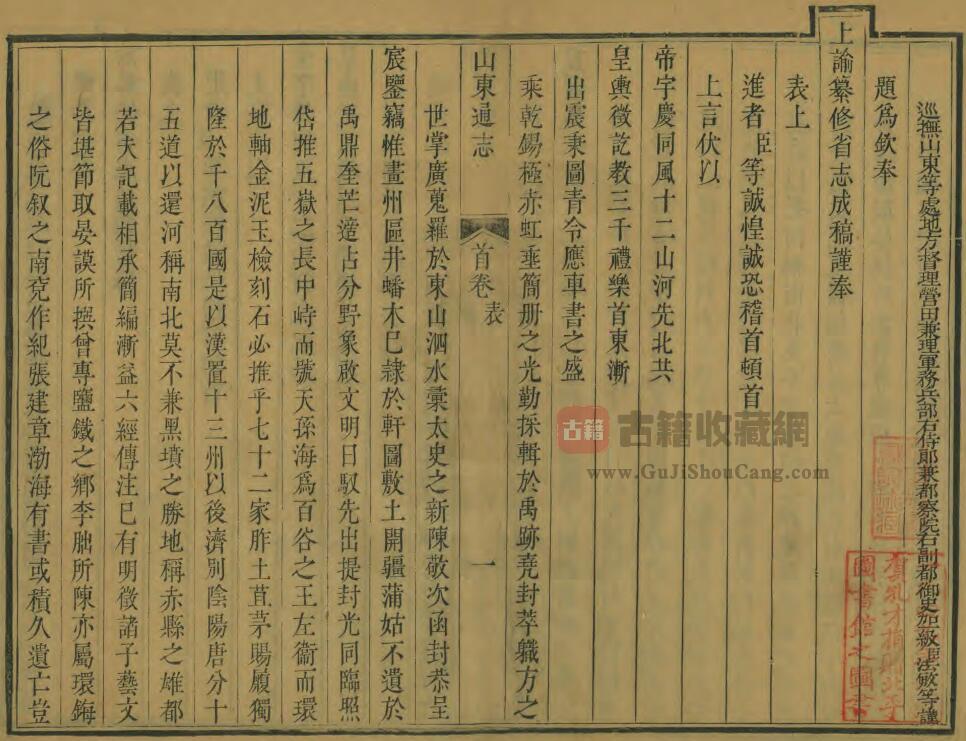 巡撫山東等處地方督理營田兼理軍務兵部右侍郎兼都察院右副都御史加級臣法敏等謹
題爲欽奉
上諭纂修省志成稿謹奉
表上
進者臣等誠惶誠恐稽首頓首
上言伏以
帝宇慶同風十二山河先北共
皇輿徵訖教三千禮樂首東漸
出震秉圖青令應車書之盛
乘乾錫極赤虹垂簡册之光勤採輯於禹跡堯封萃職方之
山東通志
首卷 表
一
世掌廣蒐羅於東山泗水彙太史之新陳敬次函封恭呈
宸鑒竊惟畫州區井蟠木巳隷於軒圖敷土開疆蒲姑不遺於
禹鼎奎芒逹占分野象啟文明日馭先出提封光同臨照
岱推五嶽之長中峙而號天孫海爲百谷之王左衞而環
地軸金泥玉檢刻石必推乎七十二家胙土苴茅賜履獨
隆於千八百國是以漢置十三州以後濟別陰陽唐分十
五道以還河稱南北莫不兼黑墳之勝地稱赤縣之雄都
若夫記載相承簡編漸益六經傳注巳有明徵諸子藝文
皆堪節取晏謨所撰曾專鹽鐵之鄉李朏所陳亦屬環鋂
之俗阮叙之南兖作紀張建章渤海有書或積久遺亡豈
古籍
古籍收藏網
www.GuJiShouCang.com
國書館之圖書